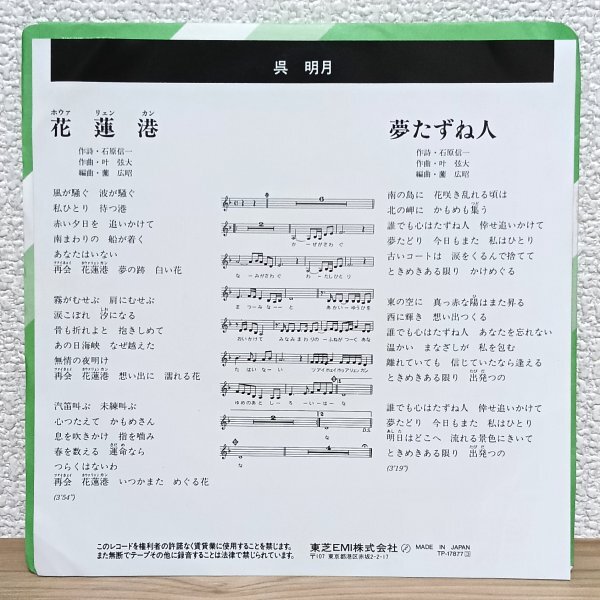 呉 明月
ホウァ リェン カン
花蓮港
作詩・石原信一
作曲・叶 弦大
編曲・薗 広昭
風が騒ぐ 波が騒ぐ
私ひとり 待つ港
赤い夕日を 追いかけて
南まわりの 船が着く
あなたはいない
再会 花蓮港 夢の跡 白い花
霧がむせぶ 肩にむせぶ
涙こぼれ 汐になる
骨も折れよと 抱きしめて
あの日海峡 なぜ越えた
無情の夜明け
再会 花蓮港 想い出に 濡れる花
汽笛叫ぶ 未練叫ぶ
心つたえて かもめさん
息を吹きかけ 指を嚙み
春を数える 運命なら
つらくはないわ
再会 花蓮港 いつかまた めぐる花
(3′54″)
かーぜがさわぐ
なーみがさわぐ わーたしひとり
まーつみなーーと あかいーゆうひを
おいかけて みなみまわりの ーふねがつーく あな
たはいない ツァイホェイホゥァリェンカン
ゆめのあと しーろーいーはーな
な
D.S.
な
夢たずね人
作詩・石原信一
作曲・叶 弦大
編曲・薗 広昭
南の島に 花咲き乱れる頃は
北の岬に かもめも集う
誰でも心はたずね人 倖せ追いかけて
夢たどり 今日もまた 私はひとり
古いコートは 涙をくるんで捨てて
ときめきある限り かけめぐる
東の空に 真っ赤な陽はまた昇る
西に輝き 想い出つくる
誰でも心はたずね人 あなたを忘れない
温かい まなざしが 私を包む
離れていても 信じていたなら逢える
ときめきある限り 出発つの
誰でも心はたずね人 倖せ追いかけて
夢たどり 今日もまた 私はひとり
明日はどこへ 流れる景色にきいて
ときめきある限り 出発つの
(3′19″)
このレコードを権利者の許諾なく賃貸業に使用することを禁じます。
また無断でテープその他に録音することは法律で禁じられています。
東芝EMI株式会社
〒107 東京都港区赤坂2-2-17
MADE IN JAPAN
TP-17877③